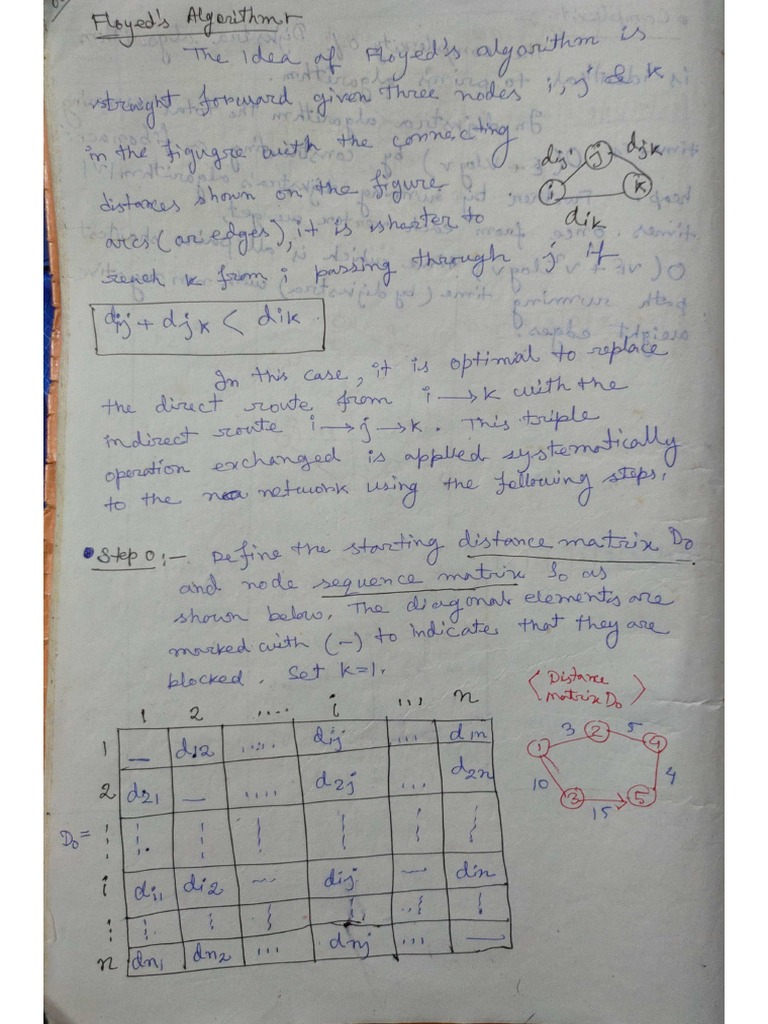 Floyed's Algorithm
The idea of Floyed's algorithm is
straight forward given three nodes i, j & k
in the figugre with the connecting
dij j djk
distances shown on the figure
i k
arcs (or edges), it is shorter to
dik
reach k from i passing through j if
dij + djk < dik
In this case, it is optimal to replace
the direct route from i → k with the
indirect route i → j → k. This triple
operation exchanged is applied systematically
to the network using the following steps.
• Step 0:- Define the starting distance matrix D0
and node sequence matrix S0 as
shown below. The diagonal elements are
marked with (-) to indicates that they are
blocked. Set k=1.
< Distance
matrix D0 >
1 2 .... i ... n
1 — d12 ..... dij ... d1n
2 d21 — .... d2j ... d2n
D0 =
i di1 di2 --- dij — din
n dn1 dn2 ... dnj ... —
1 3 2 5 4
10 4
3 15 5